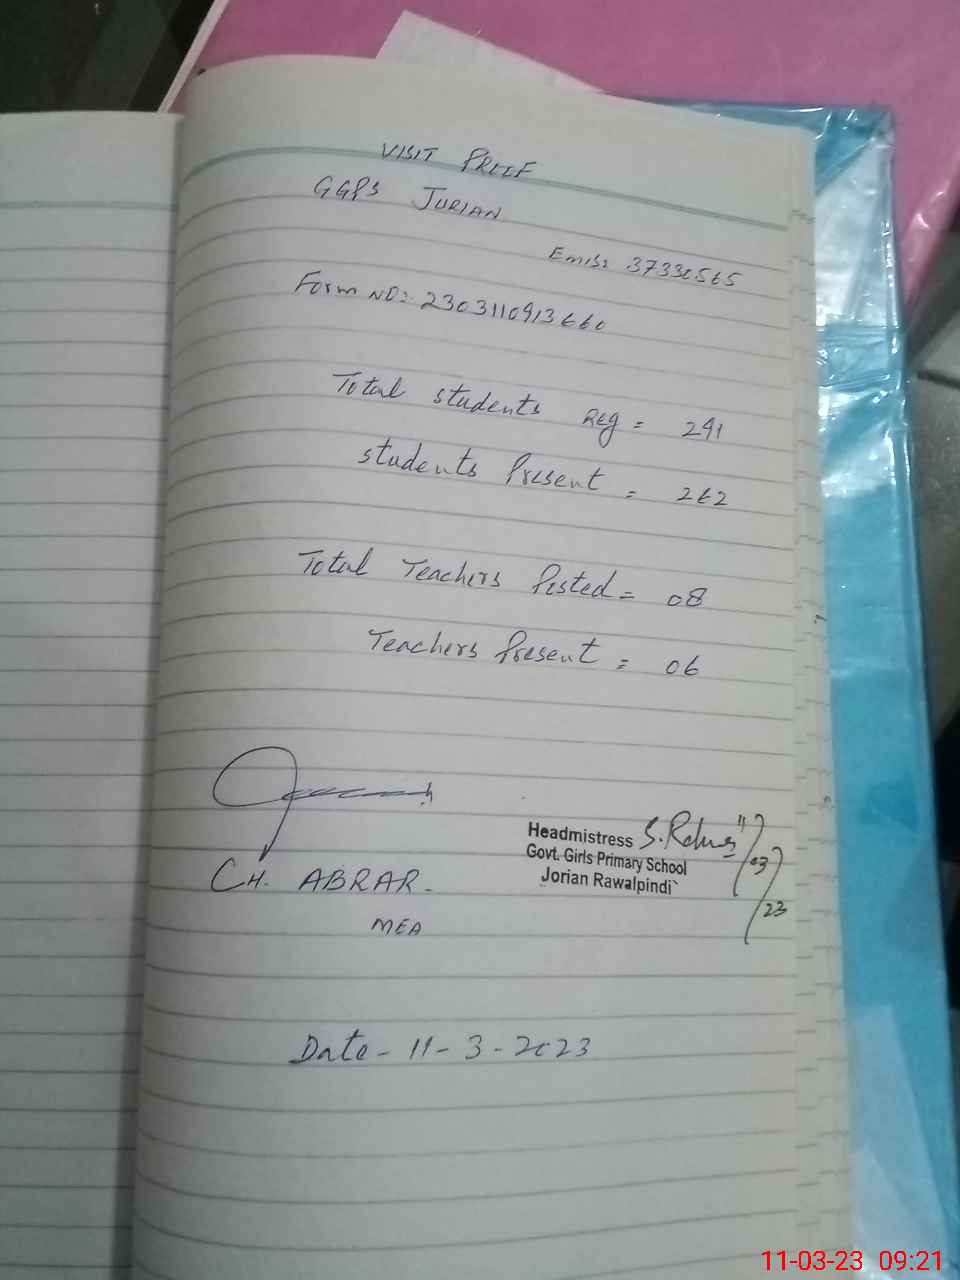 VISIT PROOF
GGPS JURIAN
Emis: 37330565
Form NO: 2303110913660
Total students Reg = 291
students Present = 262
Total Teachers Posted = 08
Teachers Present = 06
CH. ABRAR.
MEA
Headmistress
Govt. Girls Primary School
Jorian Rawalpindi
11/03/23
Date - 11-3-2023
11-03-23 09:21